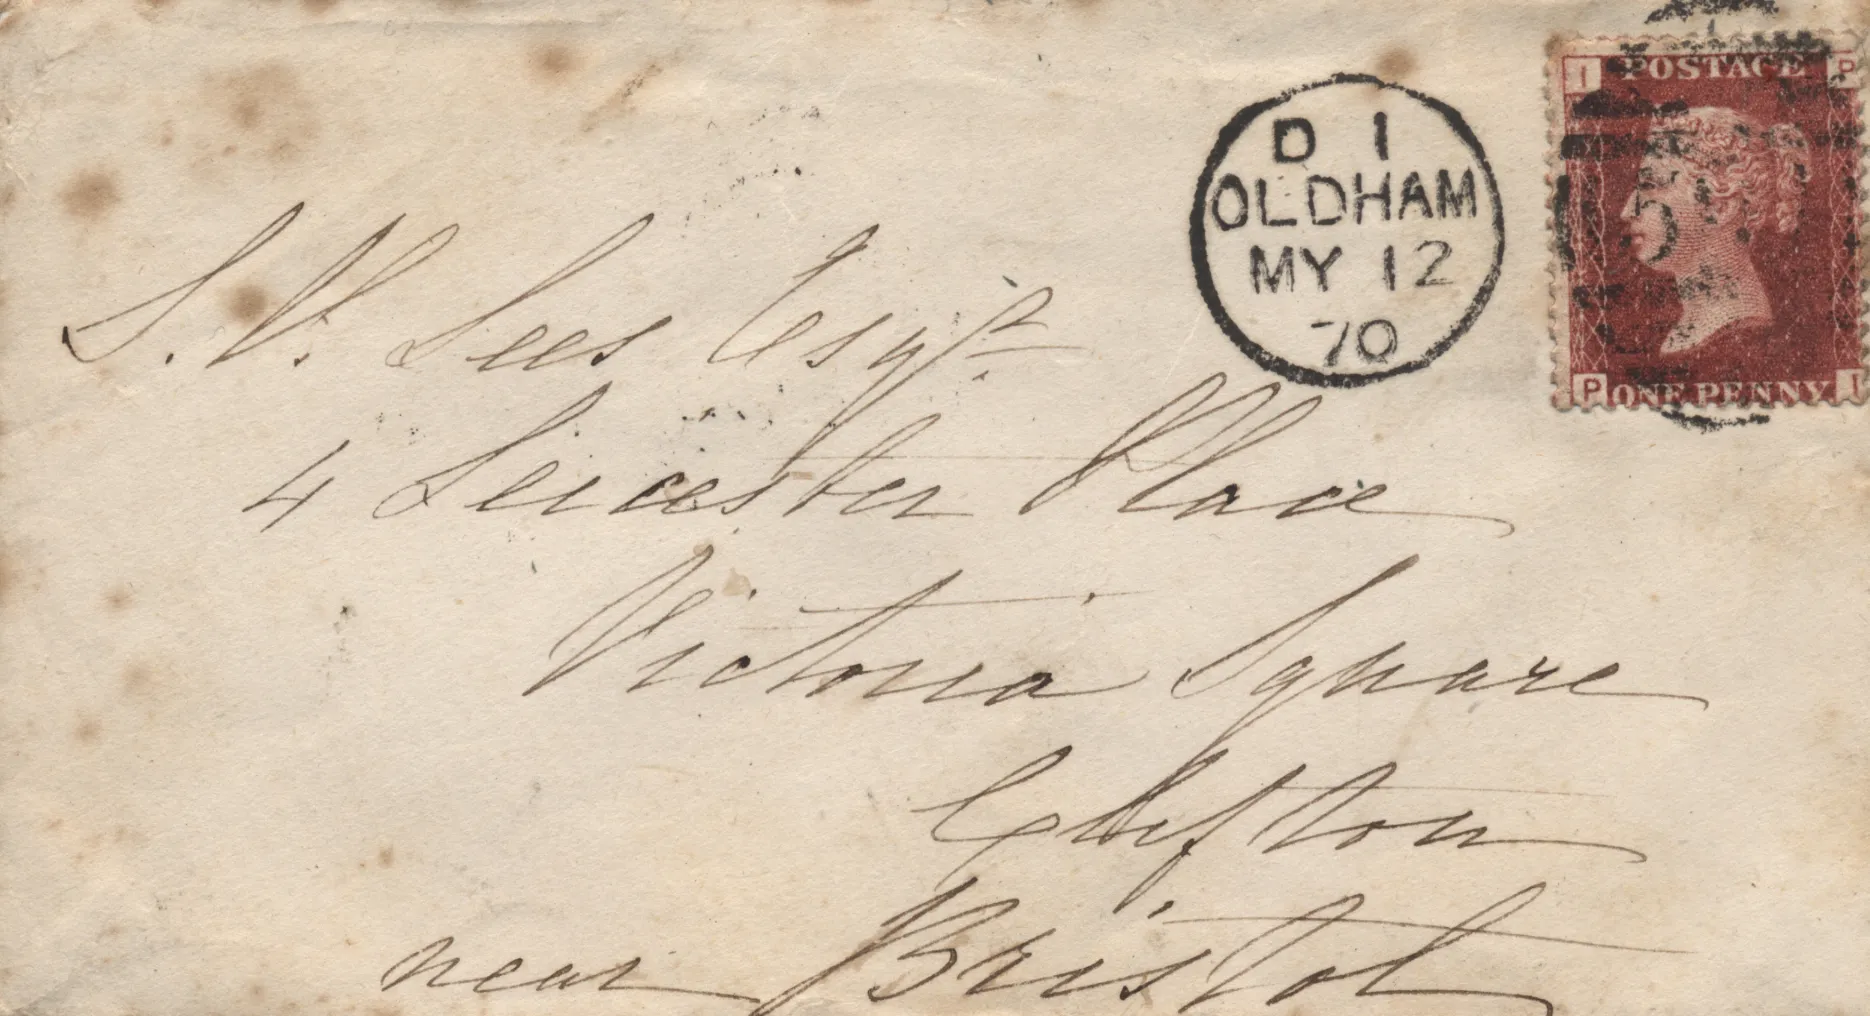 D 1
OLDHAM
MY 12
70
I POSTAGE P
P ONE PENNY I
S. V. Lees Esqr.
4 Leicester Place
Victoria Square
Clifton
near Bristol